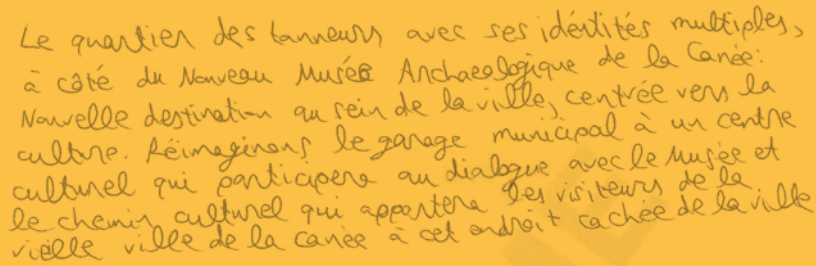 Le quartier des tanneurs avec ses idéntités multiples,
à côté du Nouveau Musée Archaeologique de la Canée:
Nouvelle destination au sein de la ville, centrée vers la
culture. Réimaginons le garage municipal à un centre
culturel qui participera au dialogue avec le Musée et
le chemin culturel qui apportera les visiteurs de la
vieille ville de la Canée à cet endroit cachée de la ville